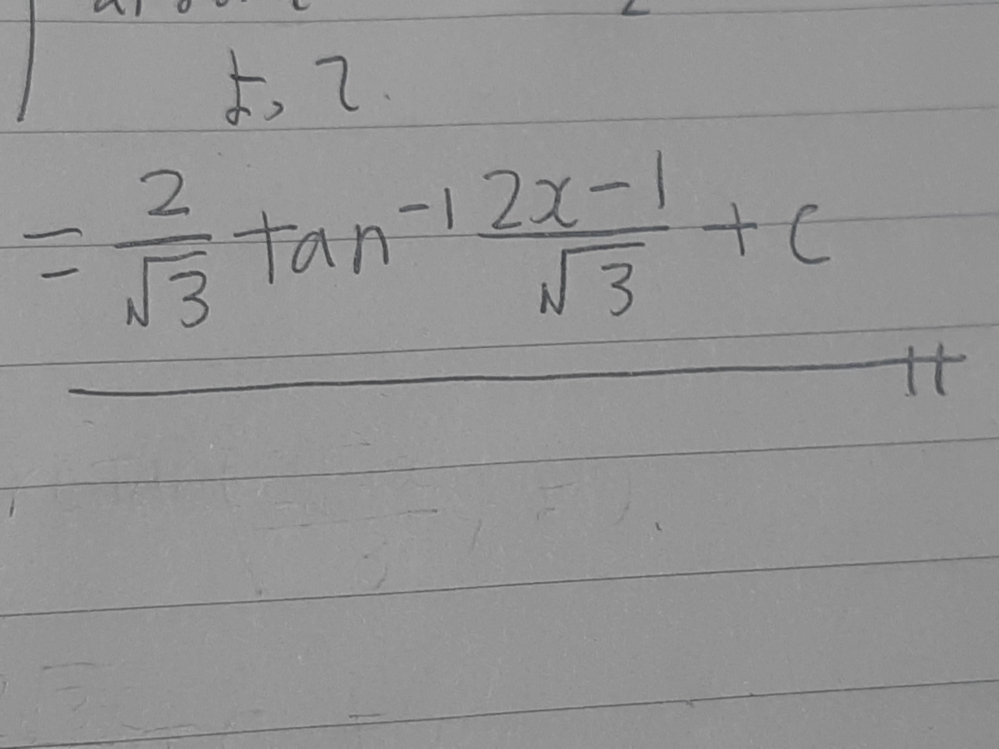 よって
= 2/√3 tan⁻¹ (2x-1)/√3 + C